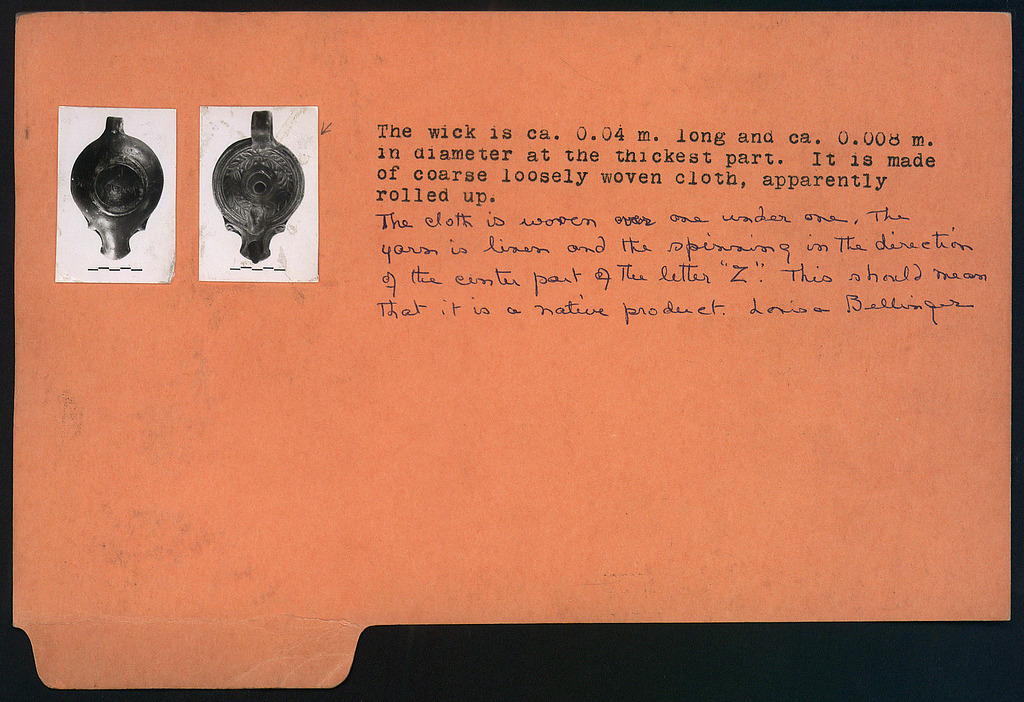 The wick is ca. 0.04 m. long and ca. 0.008 m.
in diameter at the thickest part. It is made
of coarse loosely woven cloth, apparently
rolled up.
The cloth is woven over one under one. The
yarn is linen and the spinning in the direction
of the center part of the letter "Z". This should mean
that it is a native product. Louisa Bellinger